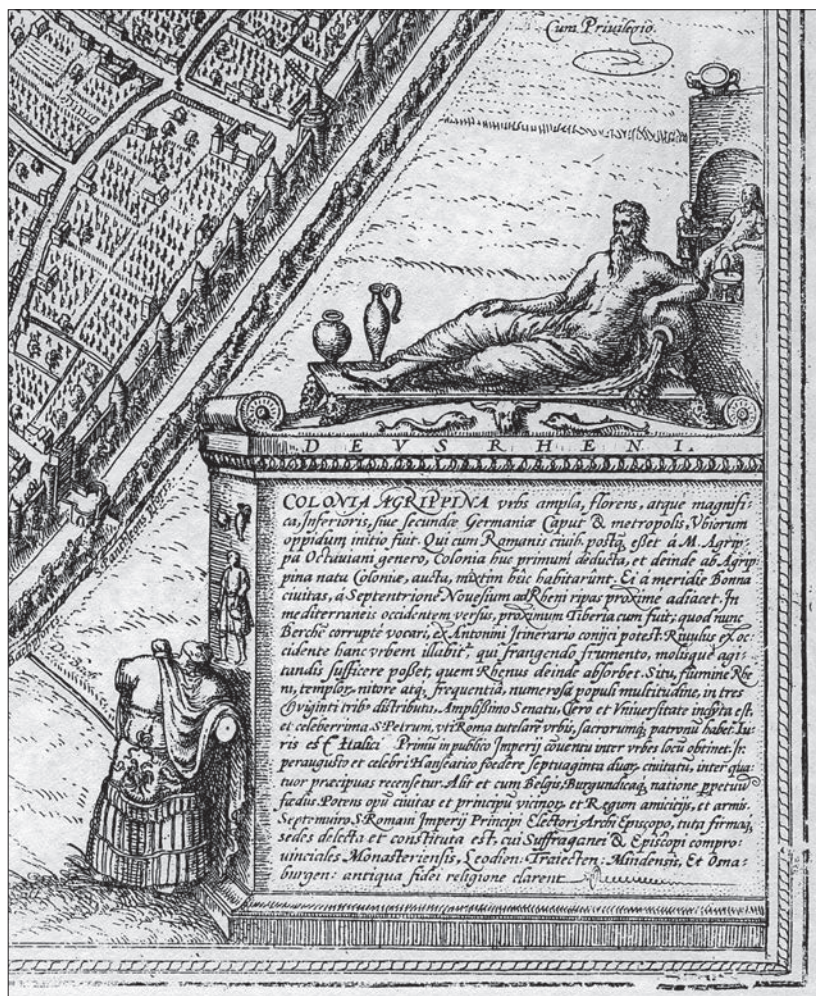 Cum Priuilegio.
DEVS RHENI.
COLONIA AGRIPPINA vrbs ampla, florens, atque magnifi-
ca, Inferioris, siue secundæ Germaniæ Caput & metropolis, Vbiorum
oppidum initio fuit. Qui cum Romanis ciuib. postq, eßet à M. Agrip-
pa Octauiani genero, Colonia huc primum deducta, et deinde ab Agrip-
pina natu Coloniæ, aucta, mixtim hic habitarunt. Ei a meridie Bonna
ciuitas, a Septentrione Nouesium ad Rheni ripas proximè adiacet. In
mediterraneis occidentem versus, proximum Tiberiacum fuit, quod nunc
Berchē corruptè vocari, ex Antonini Itinerario conijci potest. Riuulus ex oc-
cidente hanc vrbem illabit, qui frangendo frumento, molisque agi-
tandis sufficere poßet, quem Rhenus deinde absorbet. Situ, flumine Rhe
ni, templor, nitore atq, frequentiâ, numerosâ populi multitudine, in tres
& viginti trib, distributa, Amplißimo Senatu, Clero et Vniuersitate inclyta est,
et celeberrima. S. Petrum, vti Roma tutelarē vrbis, sacrorumq, patronū habet. Iu-
ris est Italici Primū in publico Imperij cōuentu inter vrbes locū obtinet. Ir
peraugusto et celebri Hanseatico foedere septuaginta duar, ciuitatū, inter qua-
tuor præcipuas recensetur. Alit et cum Belgis, Burgundicaq, natione ppetuū
fœdus. Potens opū ciuitas et principū vicinor, et Regum amicitijs, et armis.
Septemuiro S. Romani Imperij Principi Electori Archi Episcopo, tuta firmaq,
sedes delecta et constituta est, cui Suffraganei & Episcopi compro-
uinciales Monasteriensis, Leodien: Traiecten: Mindensis, Et Osna-
burgen: antiqua fidei religione clarent